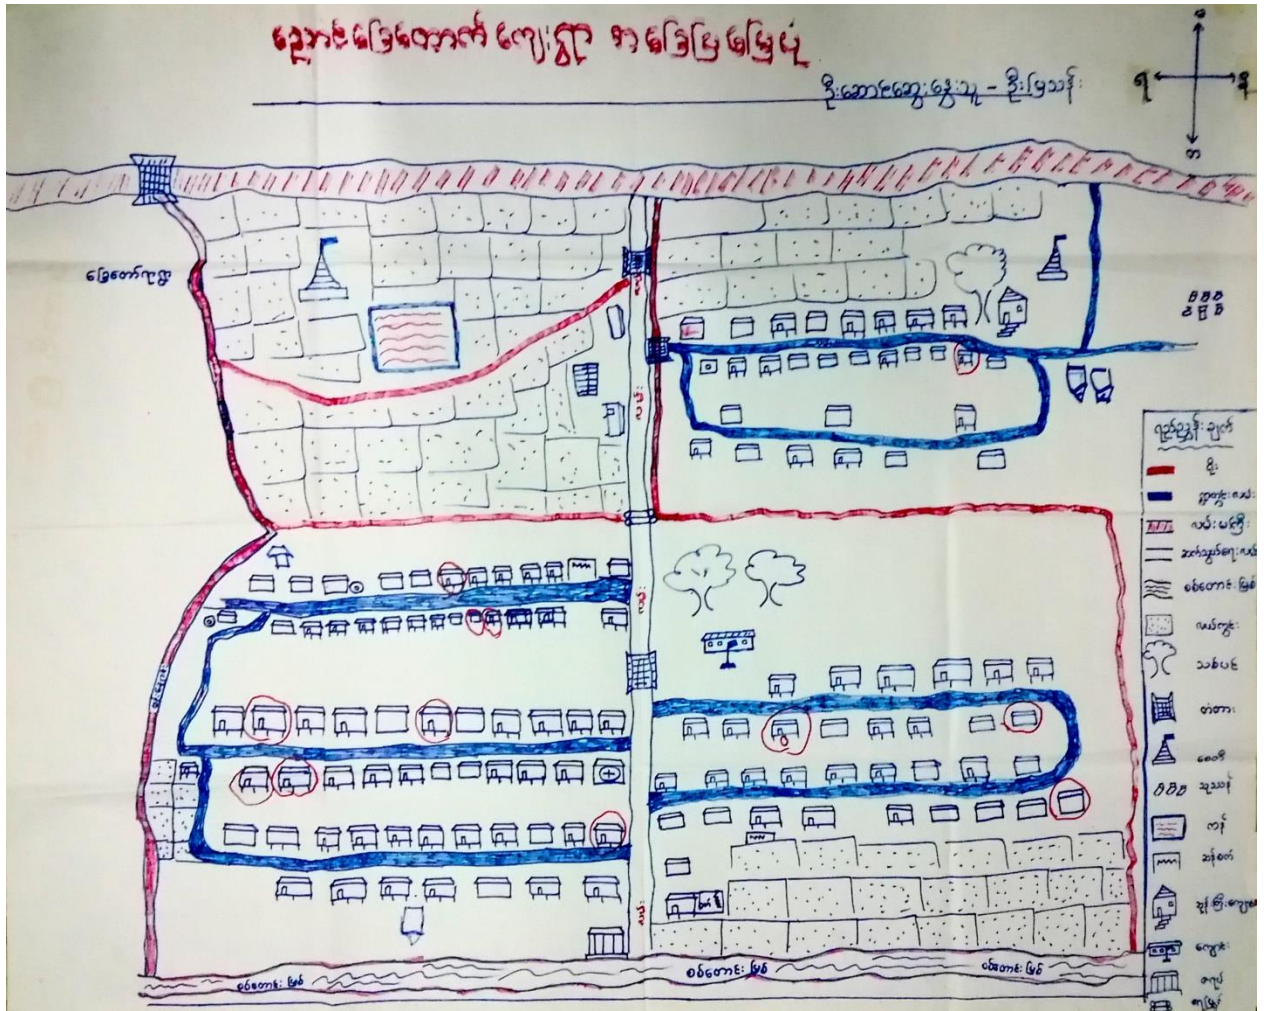 ညောင်ခြေထောက် ကျေးရွာ အခြေပြမြေပုံ
ဦးဆောင်ဆွေးနွေးသူ - ဦးမြသန်း
ရ
န
ခြေတော်ရာရွာ
လမ်း
လမ်း
လမ်း
စစ်တောင်း မြစ်
စစ်တောင်း မြစ်
စစ်တောင်း မြစ်
ရည်ညွှန်းချက်
ရိုး
ရွာတွင်းလမ်း
လမ်းမကြီး
ဆက်သွယ်ရေးလမ်း
စစ်တောင်းမြစ်
လယ်ကွင်း
သစ်ပင်
တံတား
စေတီ
သုဿန်
ကန်
ဆန်စက်
ဘုန်းကြီးကျောင်း
ကျောင်း
ဇရပ်